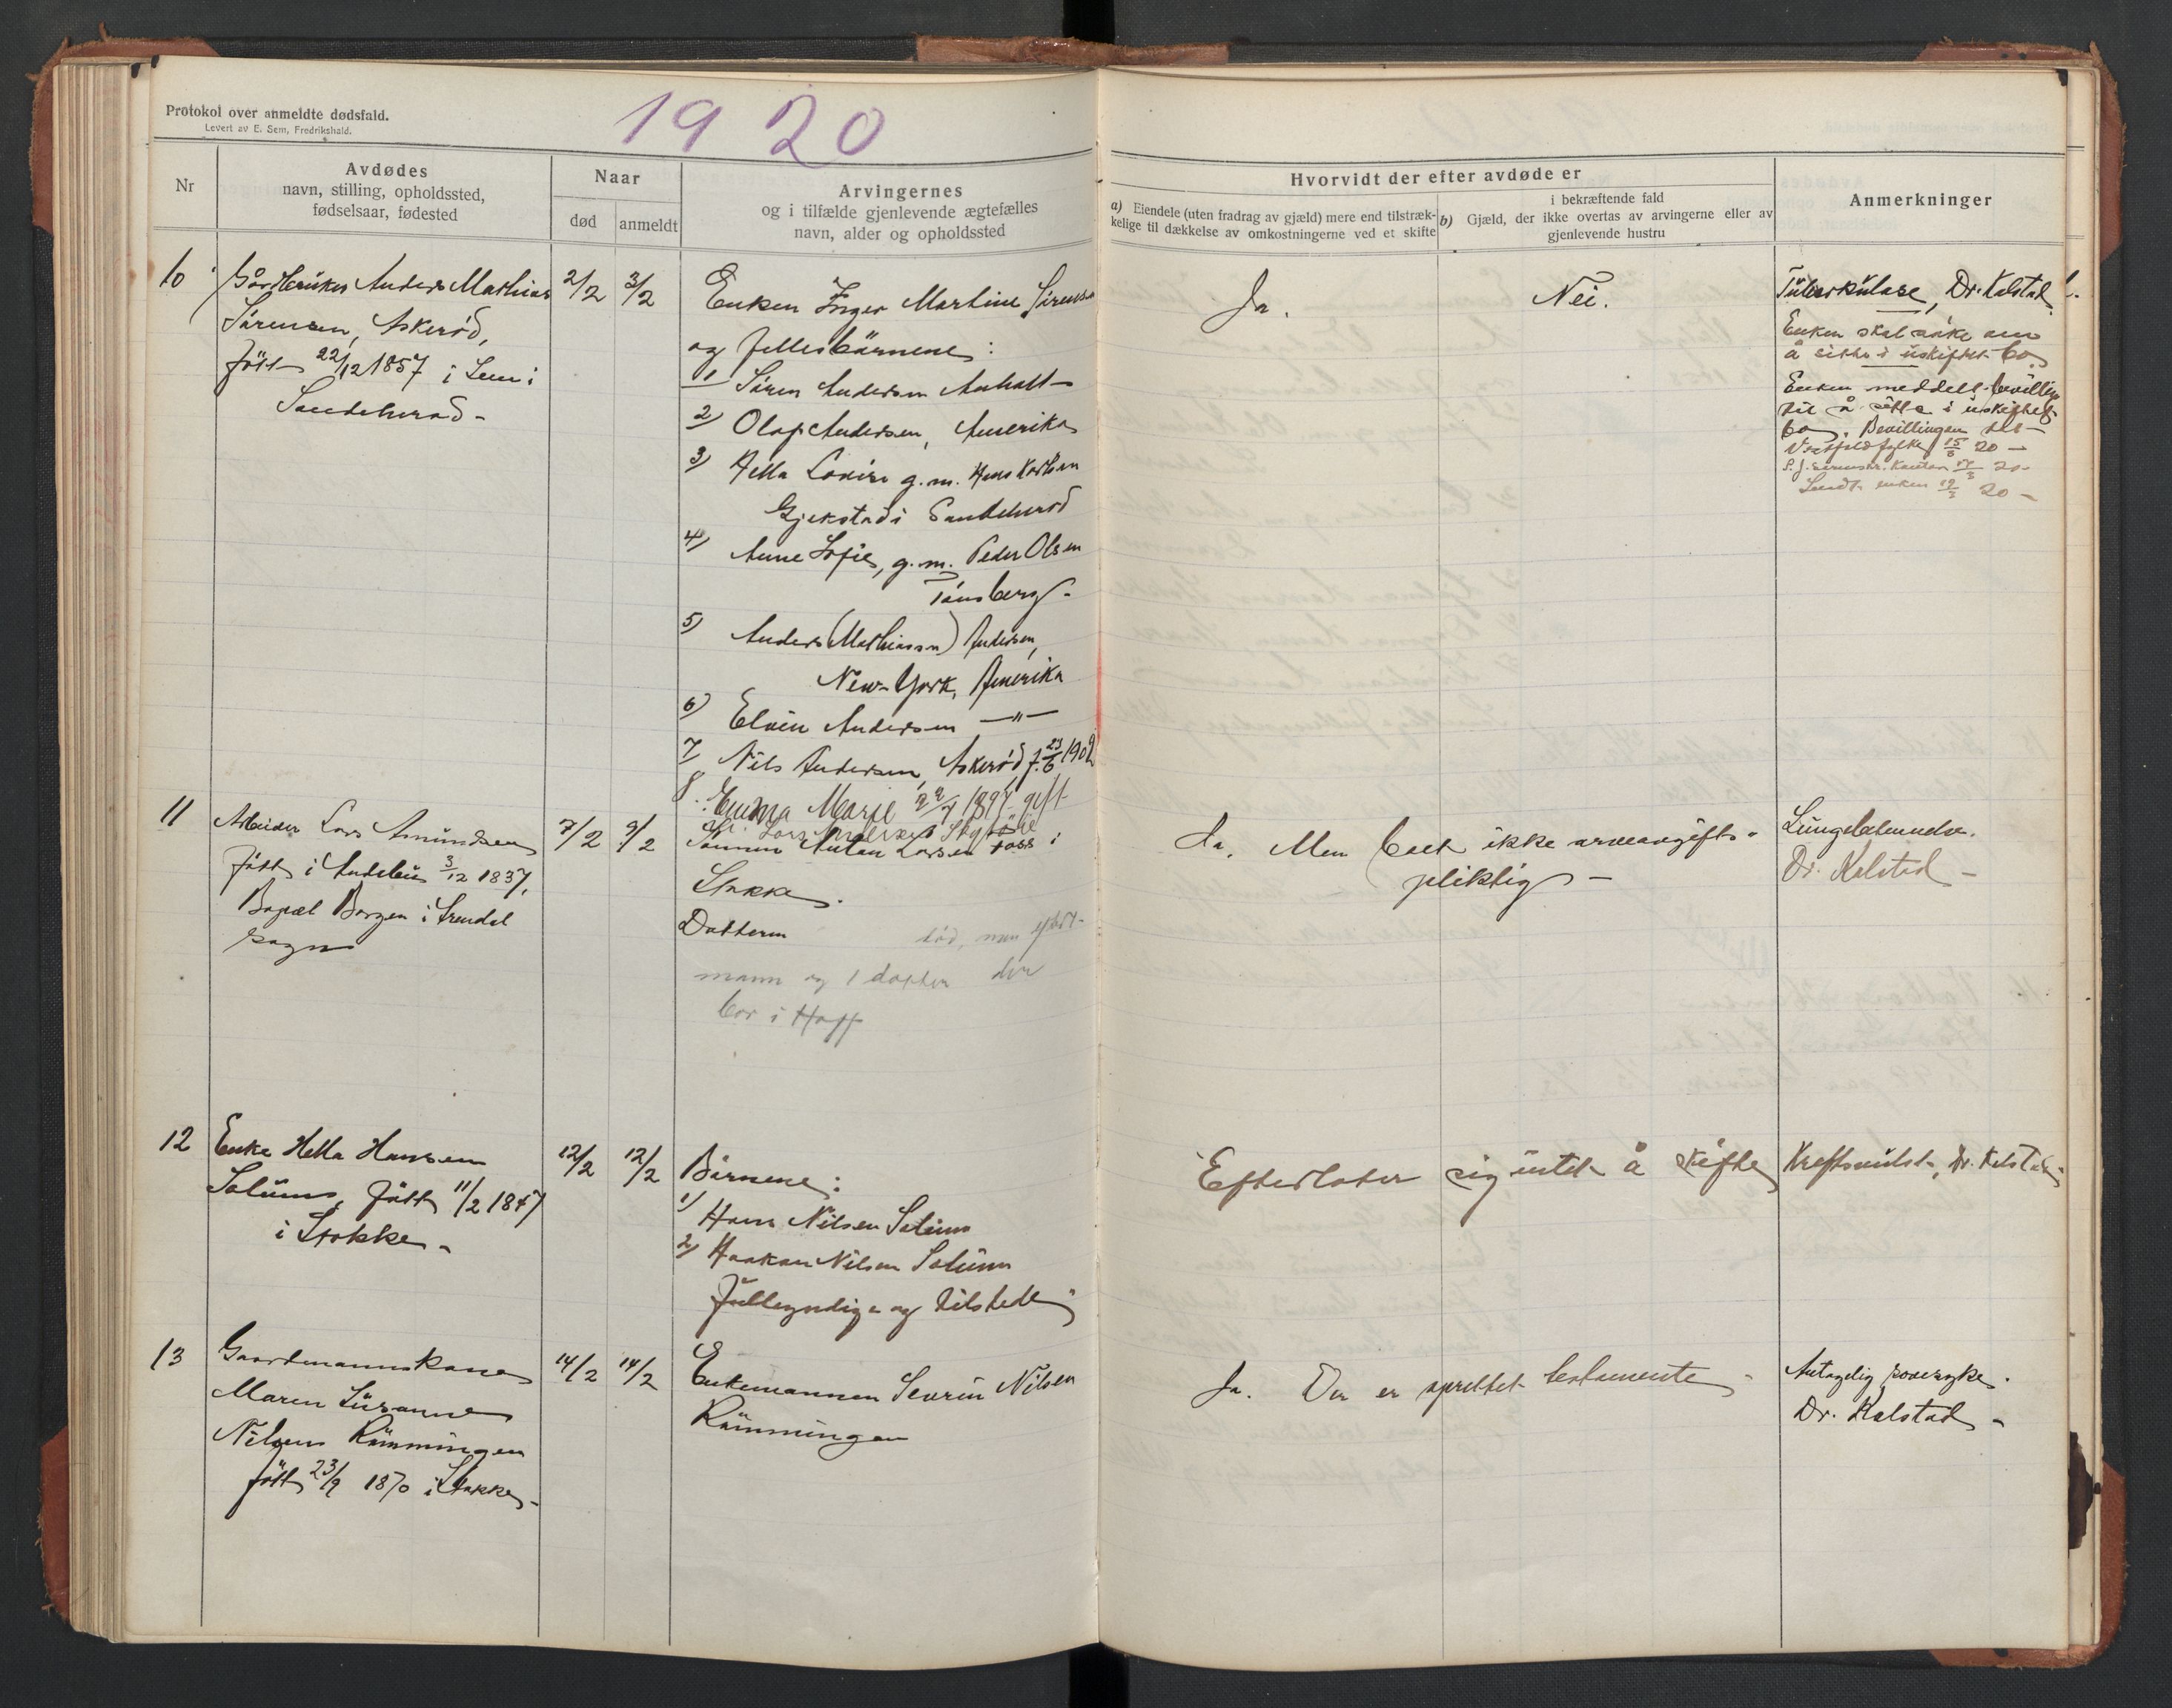 Protokol over anmeldte dødsfald.
Levert av E. Sem, Fredrikshald.
1920
Nr
Avdødes
navn, stilling, opholdssted,
fødselsaar, fødested
Naar
død
anmeldt
Arvingernes
og i tilfælde gjenlevende ægtefælles
navn, alder og opholdssted
Hvorvidt der efter avdøde er
a) Eiendele (uten fradrag av gjæld) mere end tilstræk-
kelige til dækkelse av omkostningerne ved et skifte
i bekræftende fald
b) Gjæld, der ikke overtas av arvingerne eller av
gjenlevende hustru
Anmerkninger
10
Gårdbruker Anders Mathias
Sørensen, Askerød,
født 22/12 1857 i Lem i
Sandeherad -
2/2
3/2
Enken Inger Martine Sørensen
og fellesbarnene:
1 Søren Andersen Anholt
2) Olaf Andersen, Amerika
3) Hella Lovise g.m. Hans Karlsen
Gjekstad i Sandeherad
4) Anne Sofie, g.m. Peder Olsen
Tønsberg -
5) Anders (Mathiassen) Andersen,
New-York, Amerika
6) Elvin Andersen —"—
7 Nils Andersen, Askerød f. 23/6 1902
8. Emma Marie 22/7 1897 gift
m. Lars Andersen
Ja.
Nei.
Tuberkulose, Dr. Kalstad.
Enken skal søke om
å sitte i uskiftet bo
Enken meddelt bevilling
til å sitte i uskiftet
bo. Bevillingen
Vestfold fylke 20 -
Sendt enken 20 -
11
Arbeider Lars Amundsen
født i Andebu 3/12 1837,
Bopæl Borgen i Arendal
sogn
7/2
9/2
Sønnen Anton Larsen i
Stokke.
Datteren død, men
mann og 1 datter der
bor i Hoff
Ja. Men boet ikke arveavgifts-
pliktig -
Lungebetennelse.
Dr. Kalstad -
12
Enke Hella Hansen
Solum, født 11/2 1847
i Stokke -
12/2
12/2
Barnene:
1) Hans Nilsen Solum
2) Haakon Nilsen Solum
Fullmyndige og tilstede
Efterlater sig intet å skifte
Kreftsvulst, Dr. Kalstad -
13
Gaardmannskone
Maren Susanne
Nilsen Rømmingen
født 23/9 1870 i Stokke -
14/2
14/2
Enkemannen Severin Nilsen
Rømmingen
Ja. Der er oprettet testamente -
Antagelig sovesyke.
Dr. Kalstad -